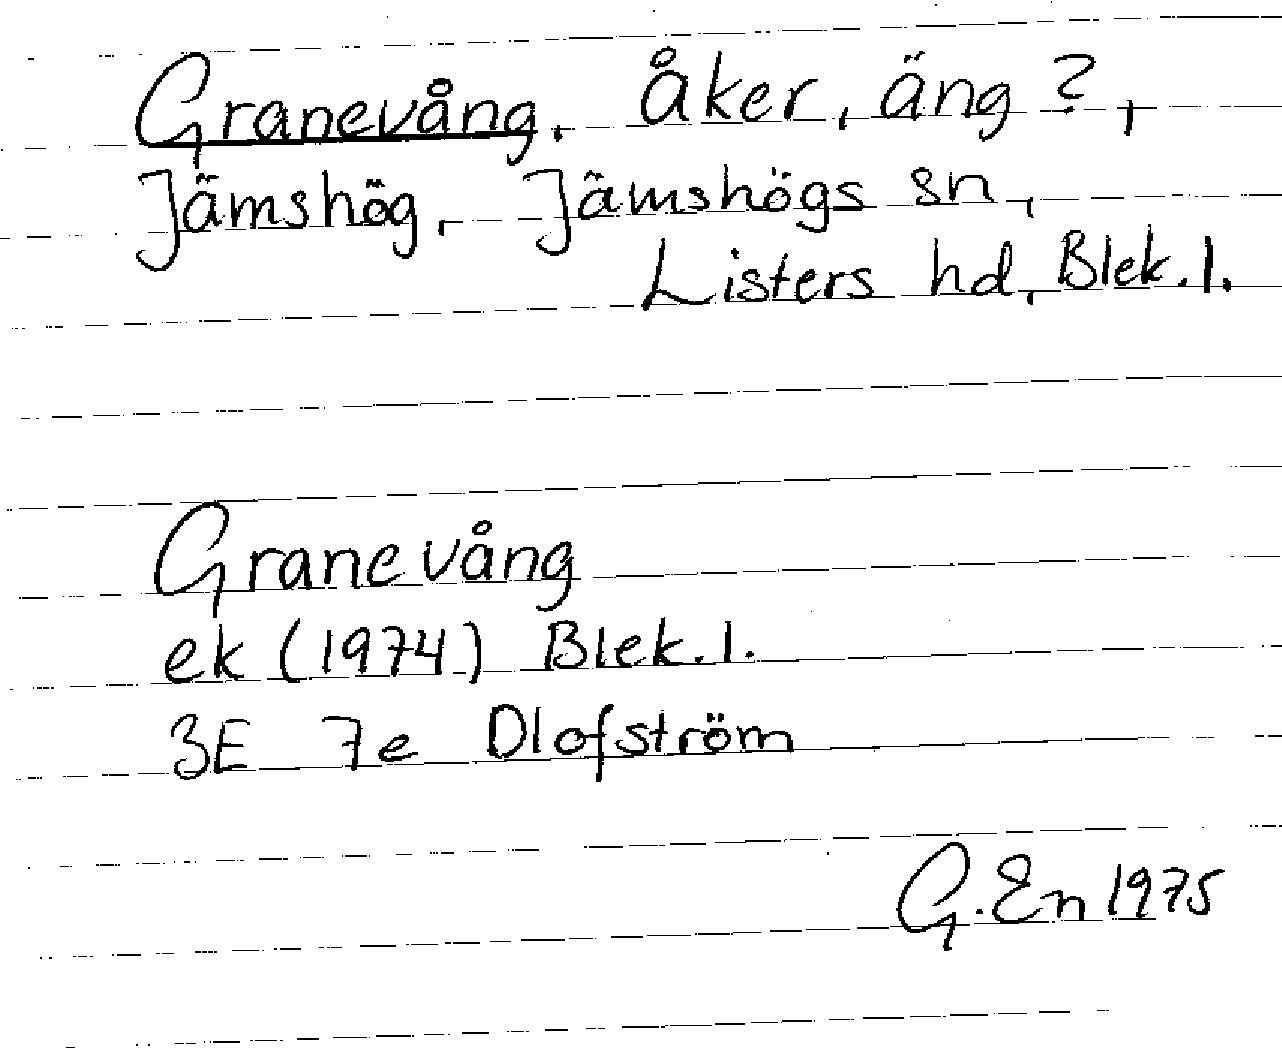 Granevång. Åker, äng?,
Jämshög, Jämshögs sn,
Listers hd, Blek. l.
Granevång
ek (1974) Blek. l.
3E 7e Olofström
G. En 1975